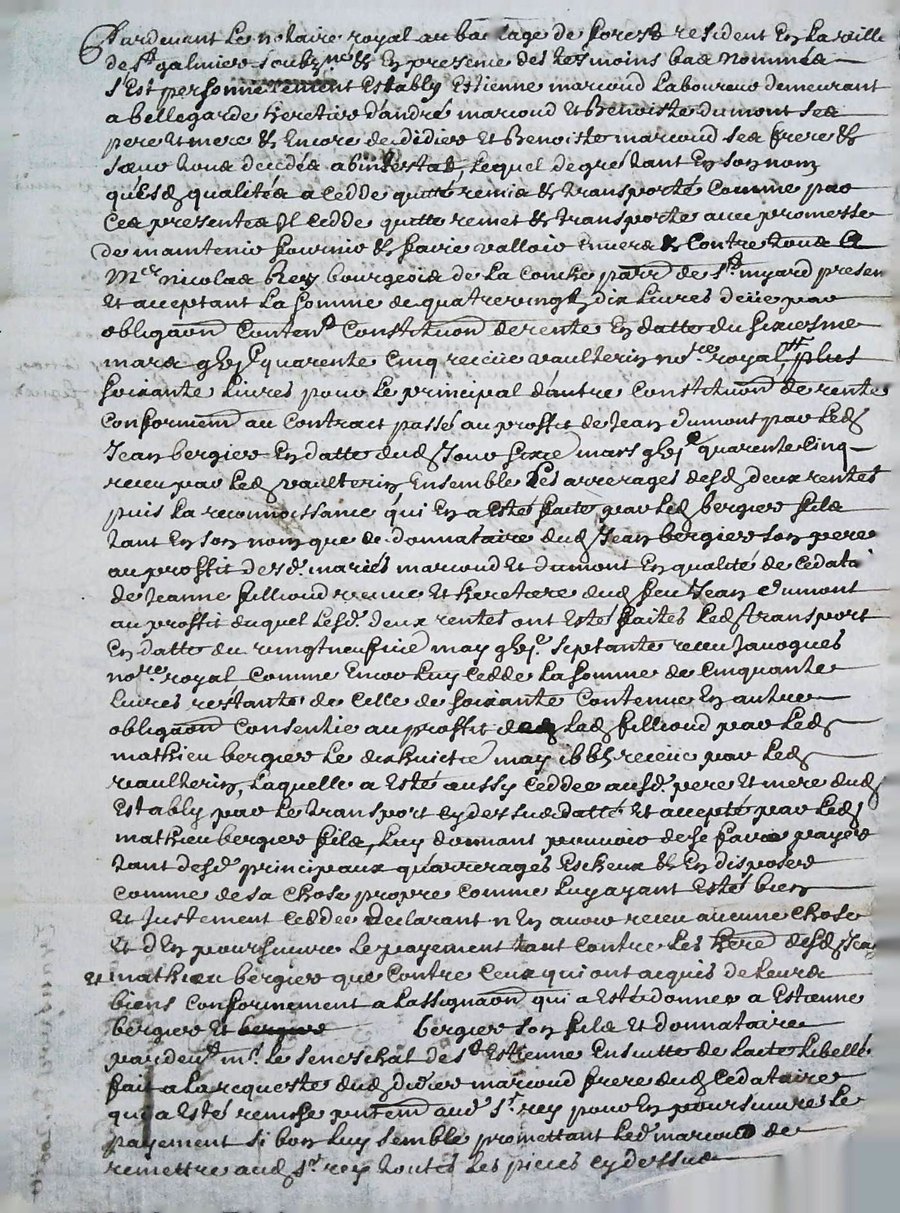 Pardevant Le notaire royal au bailliage de forest resident En La ville
de st galmier soubzné & En presence des tesmoins bas nommés
s'Est personnellement Estably Estienne marcoud Laboureur demeurant
a bellegarde heretier d'andré marcoud Et Benoiste dumont ses
pere Et mere & Encore de didier Et Benoiste marcoud ses frere &
sœur tous decedés abintestat, Lequel de gré tant En son nom
qu'esd qualités a cedde quitté remis & transporté comme par
Ces presentes Il Cedde quitte remet & transporte avec promesse
de maintenir fournir & faire valloir Envers & Contre tous A
Mer nicolas Rey bourgeois de La Conche parr de st myard presen
Et acceptant La somme de quatrevingt dix Livres deüe par
obligaon Conten Constituon de rente En datte du sixiesme
mars quarente Cinq receüe vaulterin nore royal, plus
soixante Livres pour Le principal d'autre Constituon de rente
Conformem au Contract passé au proffit de Jean dumont par Led
Jean bergier En datte dud Jour sixie mars quarente Cinq
receu par Led vaulterin Ensemble Les arrerages desd deux rentes
puis La reconnoissance qui En a Esté faite par Led bergier fils
tant En son nom que de donnataire dud Jean bergier son pere
au proffit desd. mariés marcoud Et dumont En qualité de Cedatai
de Jeanne fillioud veuve Et heretiere dud feu Jean dumont
au proffit duquel Lesd. deux rentes ont Esté faites Led transport
En datte du vingtneufvie may septante receu Jacques
nore royal Comme Encor Luy Cedde La somme de Cinquante
Livres restante de Celle de soixante Contenue En autre
obligaon Consentie au proffit de Lad fillioud par Led
mathieu bergier Le dixhuictie may receüe par Led
vaulterin, Laquelle a Esté aussy Ceddée ausd. pere Et mere dud
Estably par Le transport cydessus datté Et accepté par Led
mathieu bergier fils, Luy donnant pouvoir de se faire payer
tant desd principaux qu'arrerages Escheux & En disposer
Comme de sa Chose propre Comme Luy ayant Esté bien
Et Justement Ceddée declarant n'En avoir receu aucune Chose
Et d'En poursuivre Le payement tant Contre Les here desd Jean
et mathieu bergier que Contre Ceux qui ont acquis de Leurs
biens Conformement a Lassignaon qui a Esté donnée a Estienne
bergier Et bergier son fils Et donnataire
pardeut mr Le seneschal de st Estienne Ensuitte de Lacte Libellé
fait a La requeste dud didier marcoud frere dud Cedataire
qui a Esté remise aud sr rey pour En poursuivre Le
payement si bon Luy semble promettant Led marcoud de
remettre aud sr rey toutes Les pieces cydessus